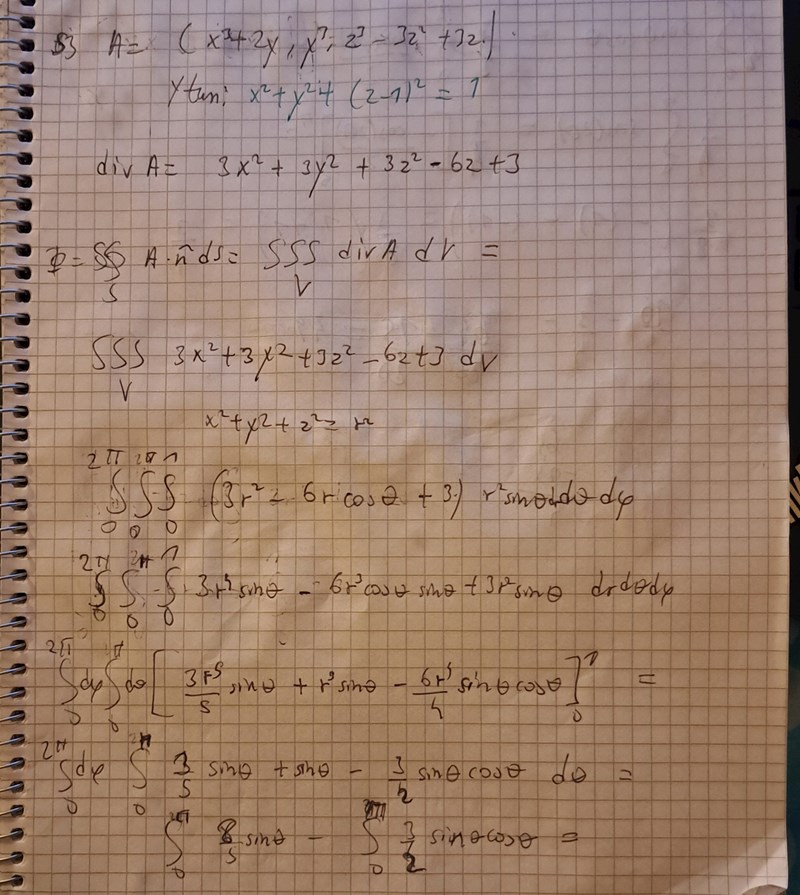 S3 A = (x³+2y, y³, z³-3z²+3z)
Ytan: x²+y²+(z-1)² = 1
div A = 3x²+3y²+3z²-6z+3
Φ = ∯_S A·n̂ ds = ∫∫∫_V div A dV =
∫∫∫_V 3x²+3y²+3z²-6z+3 dV
x²+y²+z² = r²
∫_0^{2π} ∫_0^π ∫_0^1 (3r² - 6r cosθ + 3) r² sinθ dr dθ dφ
∫_0^{2π} ∫_0^π ∫_0^1 3r⁴ sinθ - 6r³ cosθ sinθ + 3r² sinθ dr dθ dφ
∫_0^{2π} dφ ∫_0^π dθ [3r⁵/5 sinθ + r³ sinθ - 6r⁴/4 sinθ cosθ]_0^1 =
∫_0^{2π} dφ ∫_0^π 3/5 sinθ + sinθ - 3/2 sinθ cosθ dθ =
∫_0^π 8/5 sinθ - ∫_0^π 3/2 sinθ cosθ =